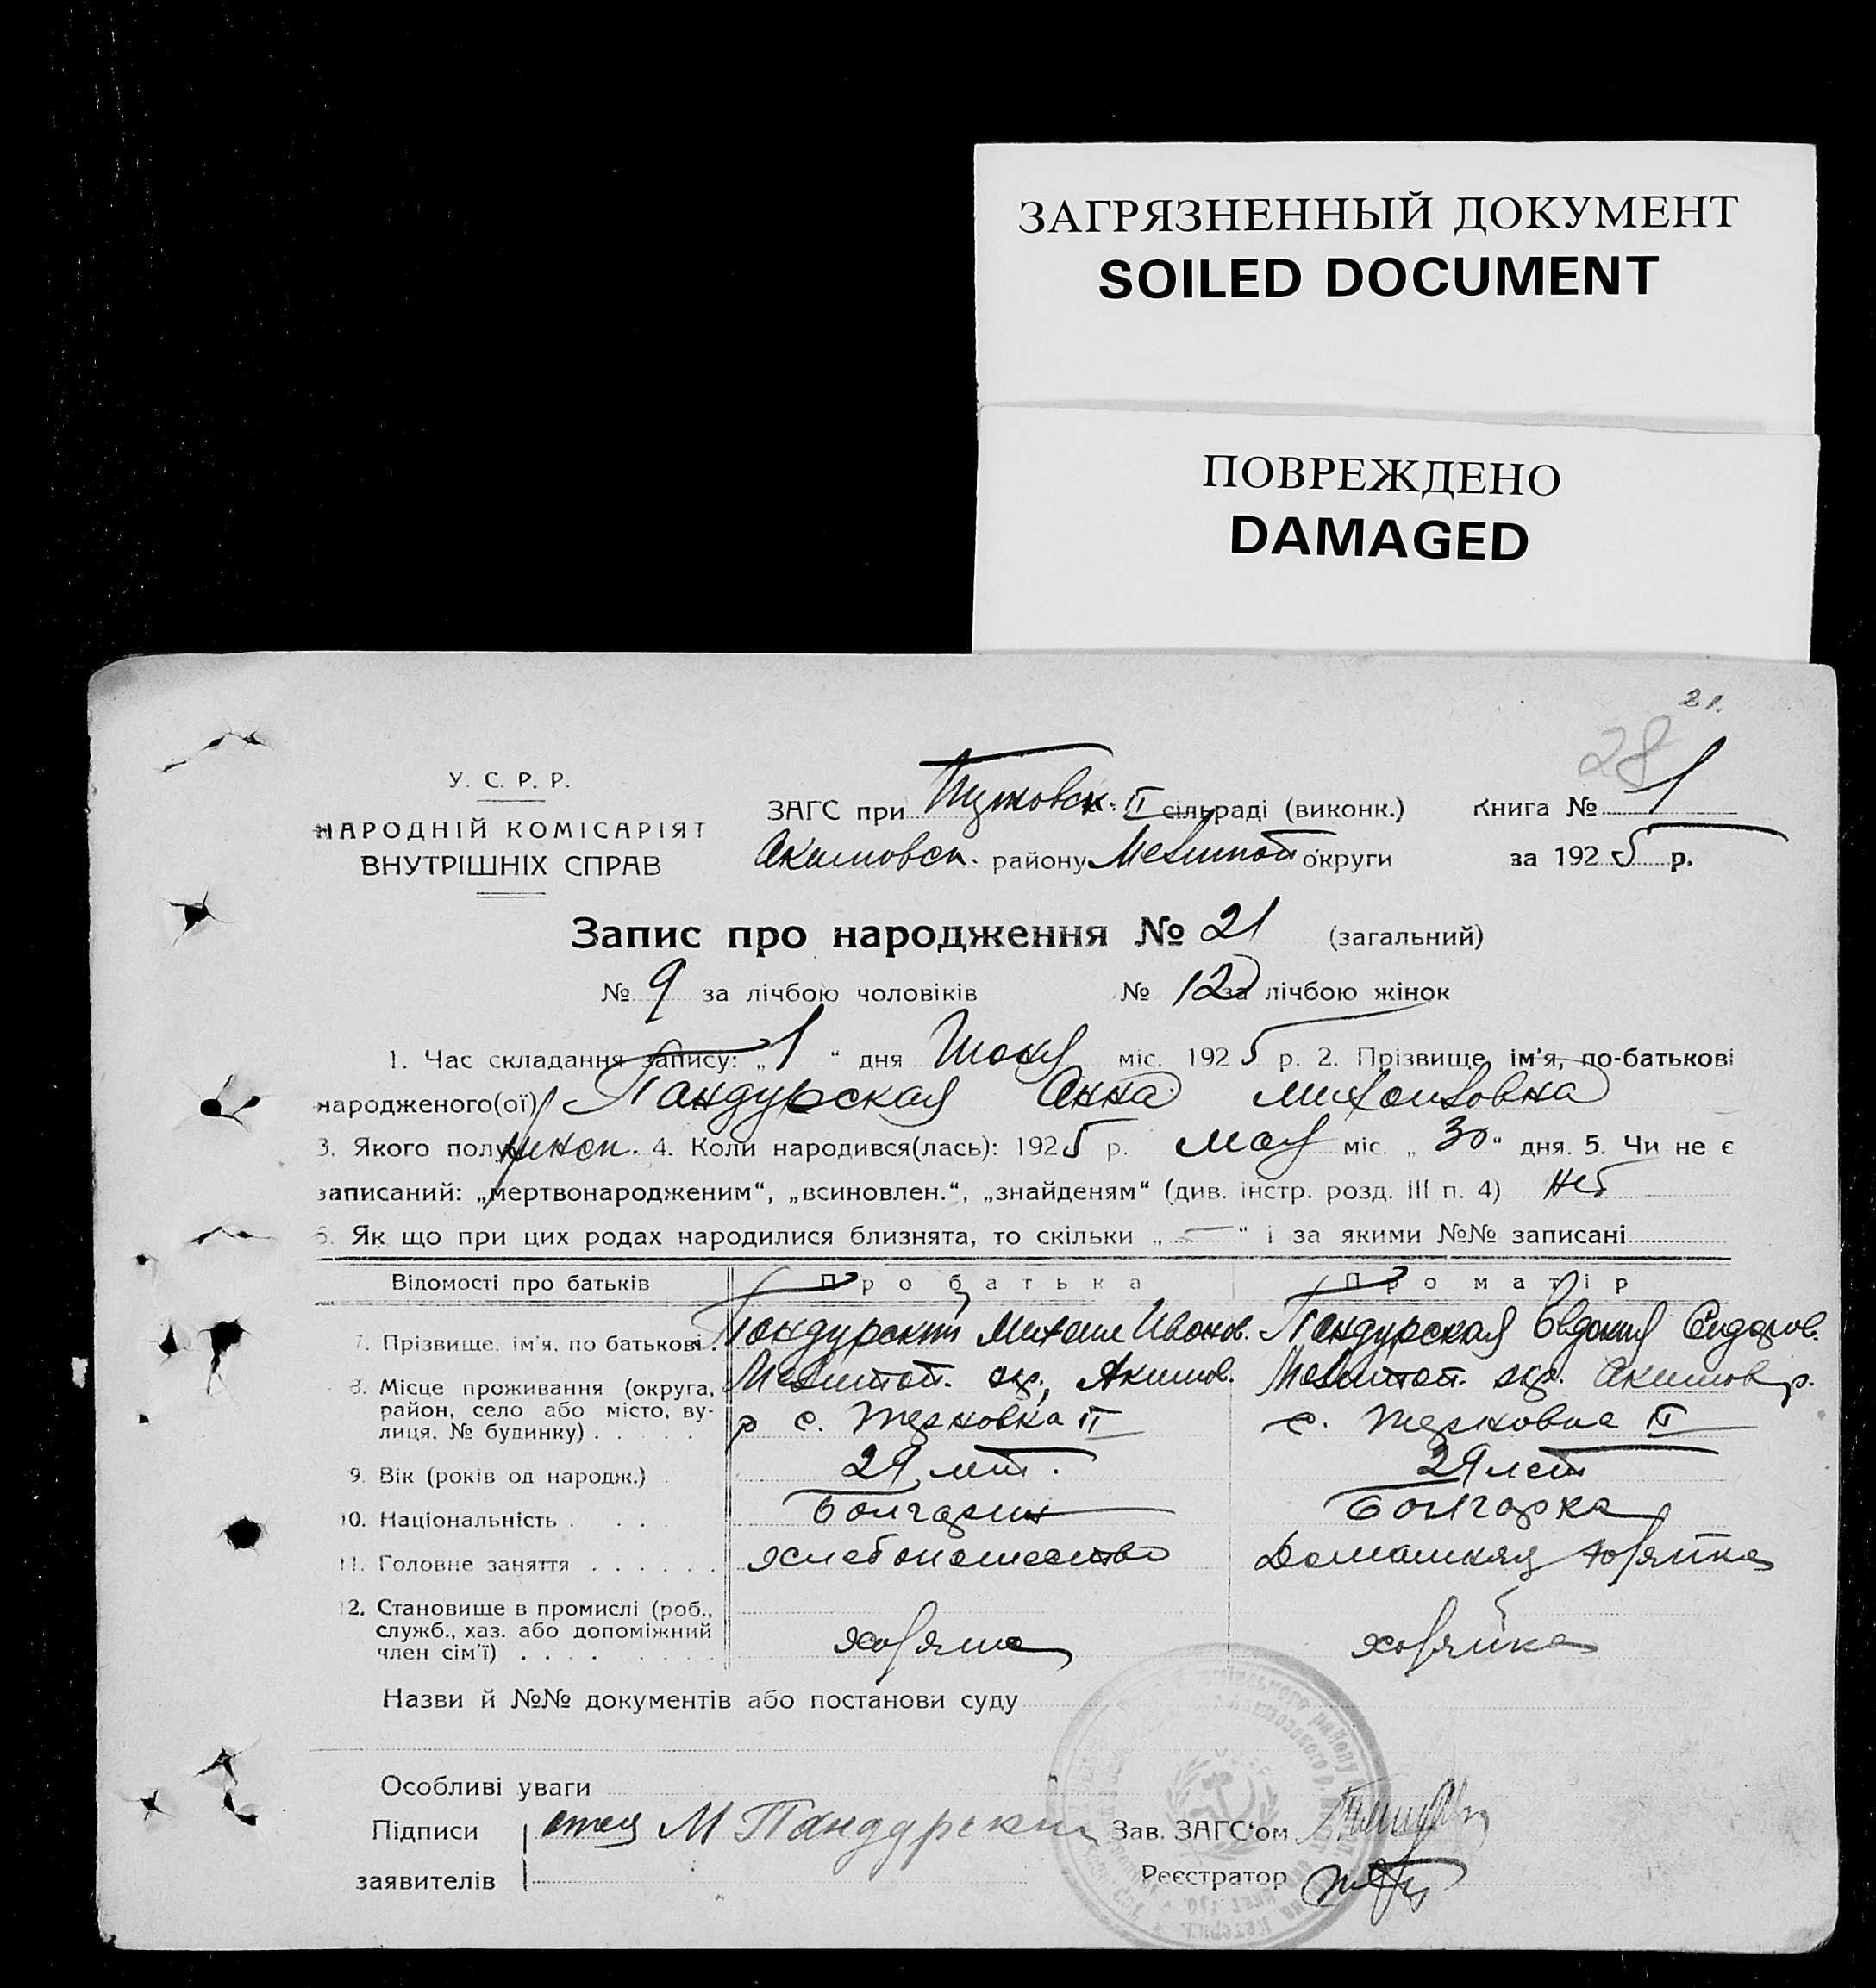 ЗАГРЯЗНЕННЫЙ ДОКУМЕНТ
SOILED DOCUMENT
ПОВРЕЖДЕНО
DAMAGED
21.
28
У. С. Р. Р.
НАРОДНІЙ КОМІСАРІЯТ
ВНУТРІШНІХ СПРАВ
ЗАГС при II сільраді (виконк.) Книга № 1
Акимовск. району Мелитоп округи за 1925 р.
Запис про народження № 21 (загальний)
№ 9 за лічбою чоловіків № 12 за лічбою жінок
1. Час складання запису: „1“ дня Июня міс. 1925 р. 2. Прізвище, ім'я, по-батькові
народженого(ої) Пандурская Анна Михайловна
3. Якого полу женск. 4. Коли народився(лась): 1925 р. мая міс. „30“ дня. 5. Чи не є
записаний: „мертвонародженим“, „всиновлен.“, „знайденям“ (див. інстр. розд. III п. 4) нет
6. Як що при цих родах народилися близнята, то скільки „—“ і за якими №№ записані
Відомості про батьків Про батька Про матір
7. Прізвище, ім'я, по батькові. Пандурский Михаил Иванов. Пандурская Евдокия Сидоров.
8. Місце проживання (округа, район, село або місто, вулиця, № будинку) . . . . . Мелитоп. окр., Акимов. Мелитоп. окр. Акимов р.
р с. II с. II
9. Вік (років од народж.) . 29 лет. 29 лет
10. Національність . . . . Болгарин Болгарка
11. Головне заняття . . . . . . хлебопашество Домашняя хозяйка
12. Становище в промислі (роб.,
служб., хаз. або допоміжний
член сім'ї) . . . . . . . . хозяин хозяйка
Назви й №№ документів або постанови суду
Особливі уваги
Підписи отец М Пандурский Зав. ЗАГС'ом
заявителів Реєстратор